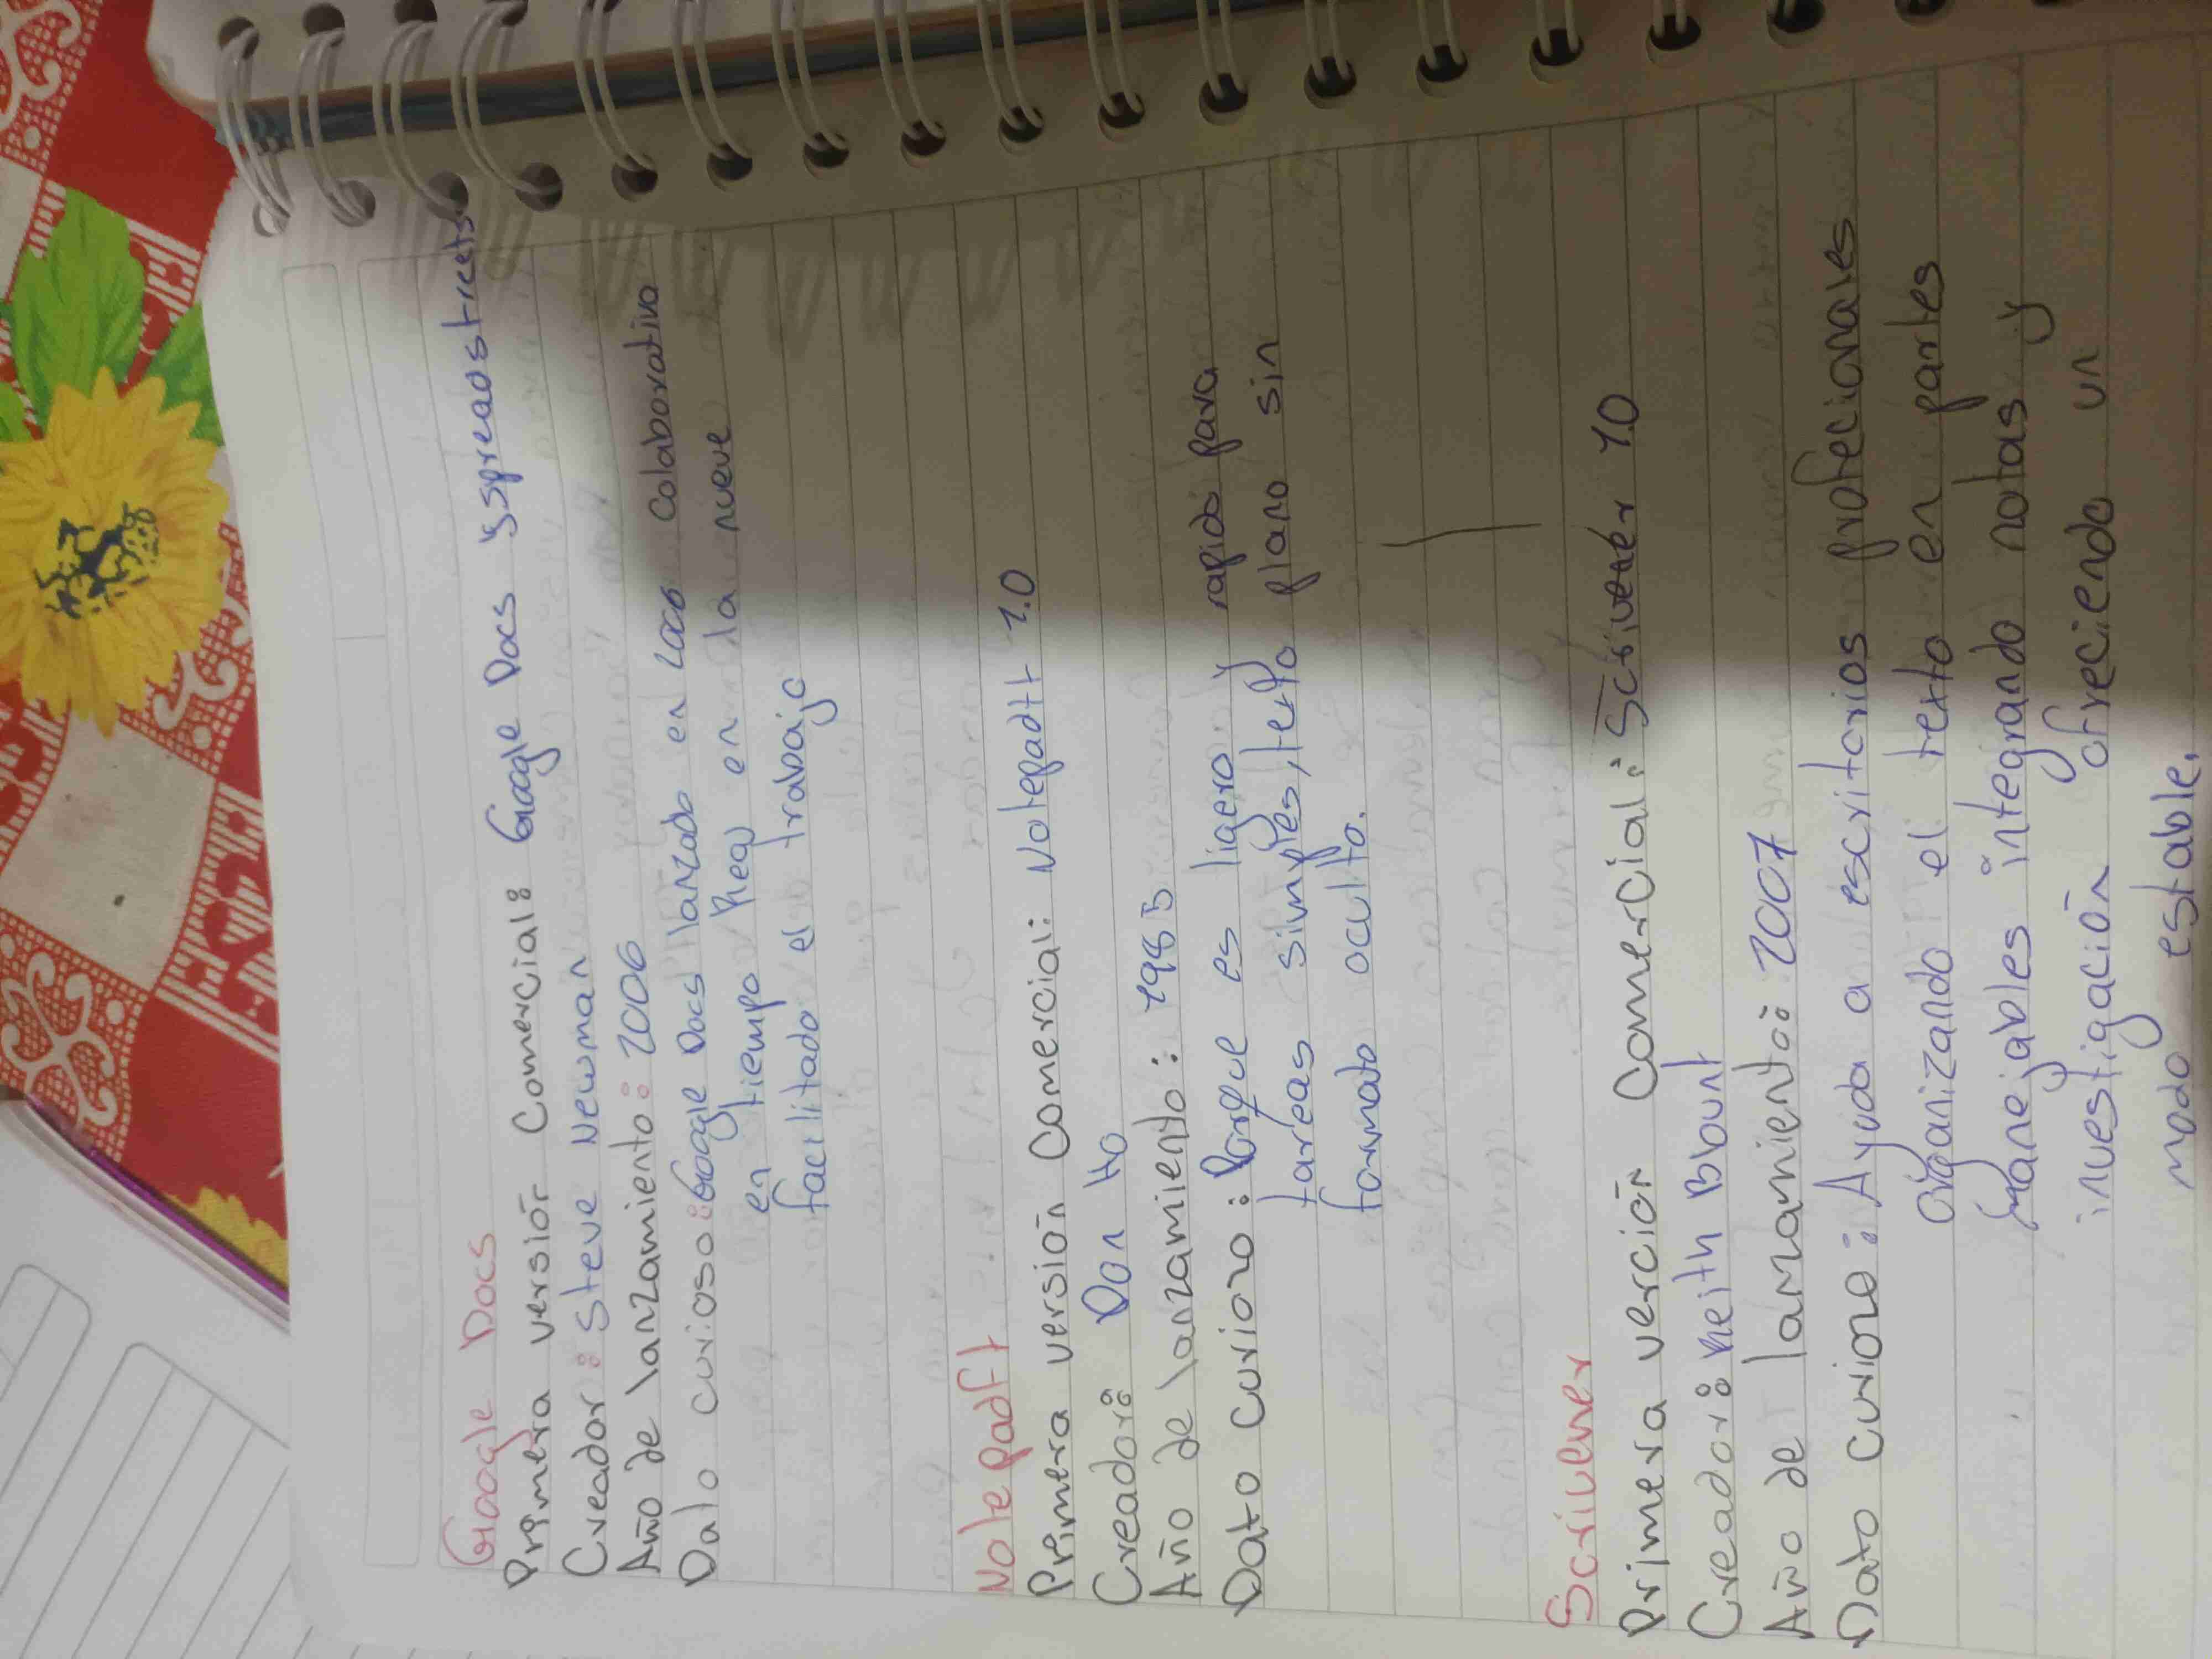 Google Docs
Primera versión Comercial: Google Docs y Spreadstreets
Creador: Steve Newman
Año de lanzamiento: 2006
Dato curioso: Google Docs lanzado en 2006 colaborativo
en tiempo Real en la nueve
facilitado el trabajo
Notepadtt
Primera versión Comercial: Notepadtt 1.0
Creador: Don Ho
Año de lanzamiento: 1985
Dato curiozo: Porque es ligero y rapido para
tareas simples, texto plano sin
formato oculto.
Scrivener
Primera verción Comercial: Scrivener 1.0
Creador: Keith Blount
Año de lamamiento: 2007
Dato curiozo: Ayuda a escritorios profecionales
organizando el texto en partes
manejables integrando notas y
investigación ofreciendo un
modo estable.